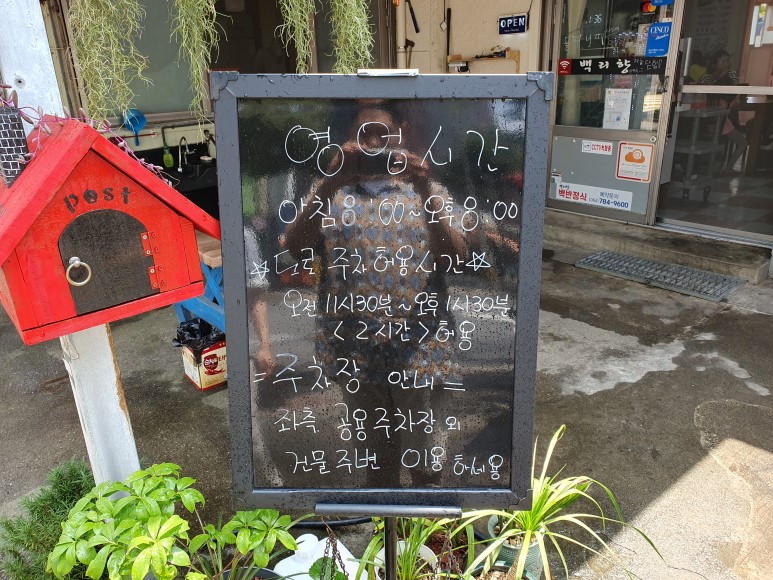 OPEN
백리향
CCTV작동중
백반정식
예약문의
(064)784-9600
post
영업시간
아침8:00~오후8:00
☆도로 주차허용시간☆
오전 11시30분~오후 1시30분
<2시간>허용
=주차장 안내=
좌측 공용주차장 외
건물주변 이용하세용